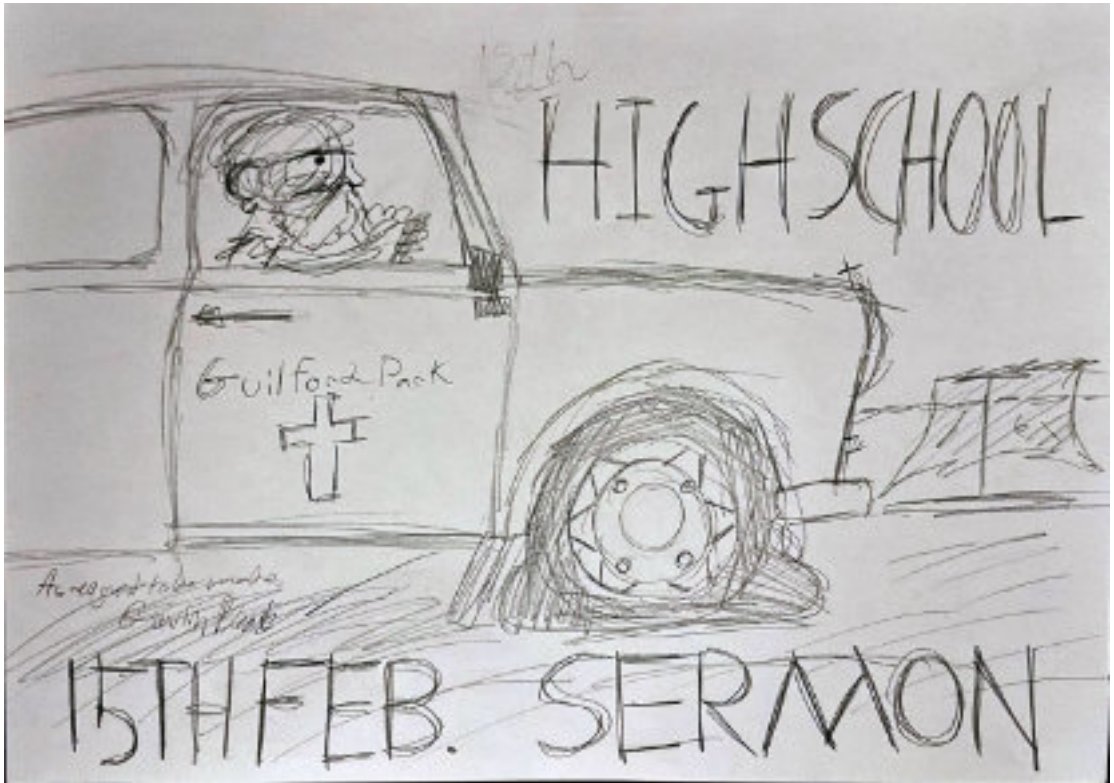 15th
HIGHSCHOOL
Guilford Park
15TH FEB. SERMON